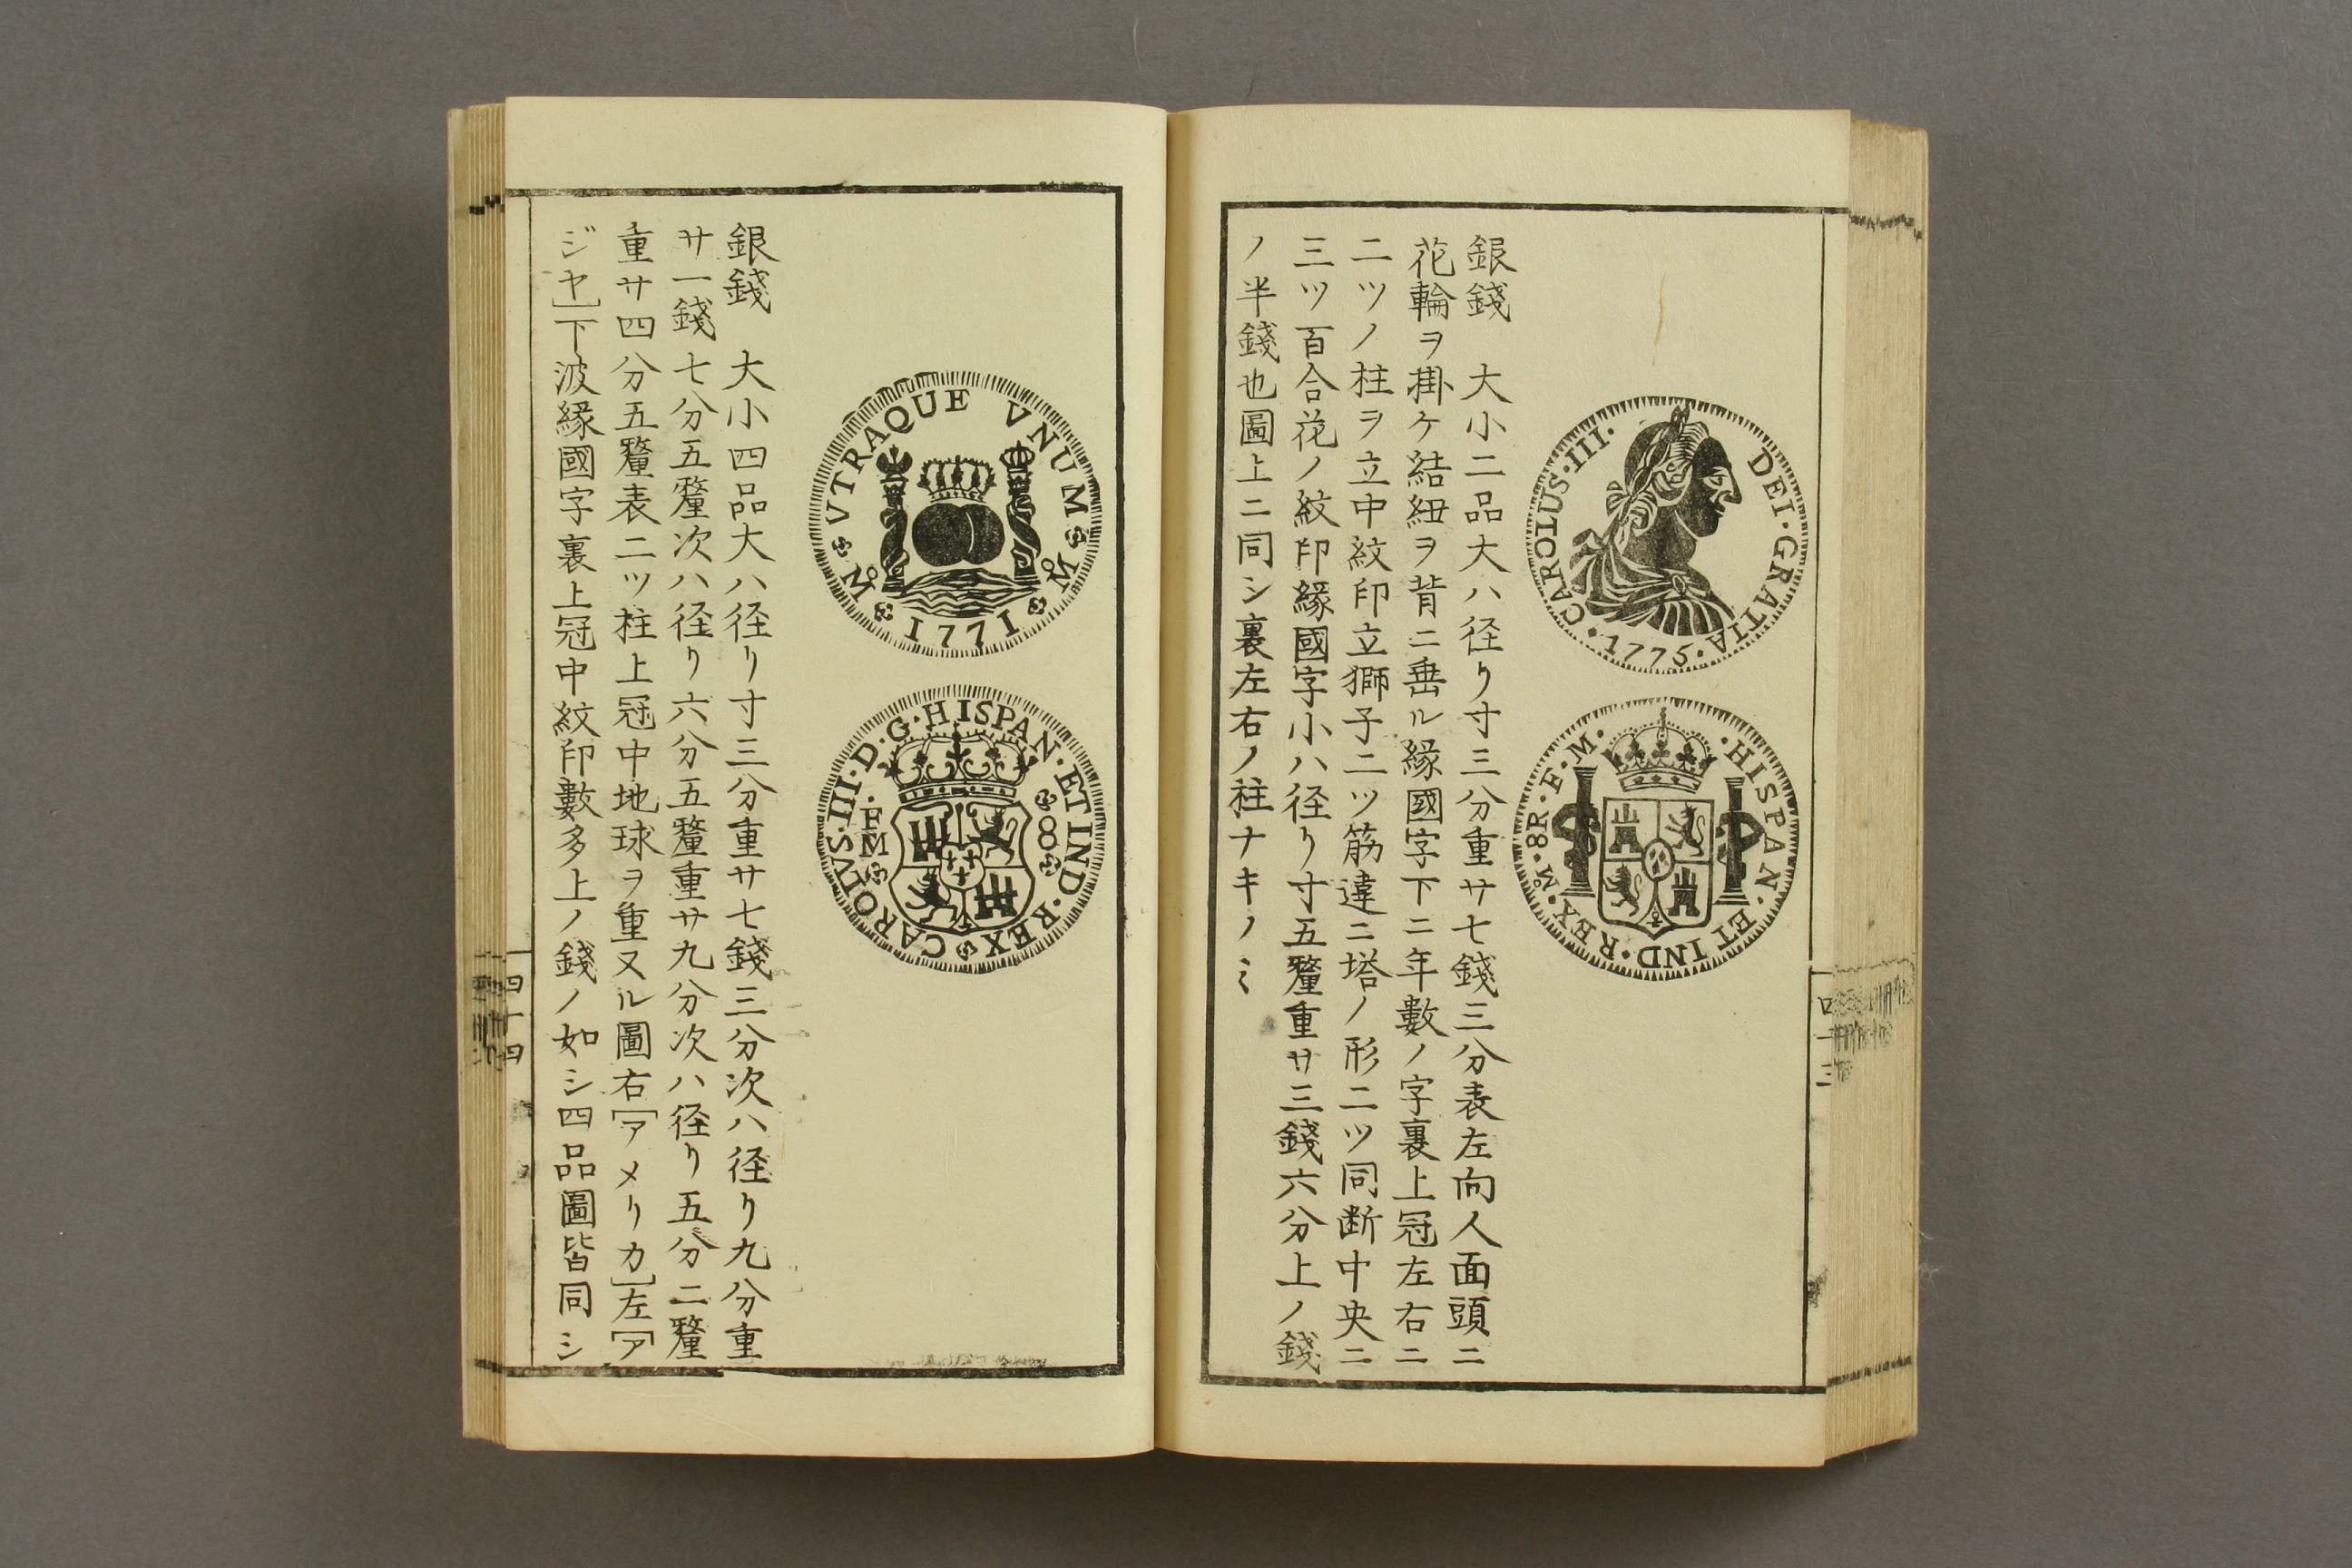 CAROLUS·III· DEI·GRATIA ·1775·
·HISPAN·ET IND·REX·M·8R·F·M·
銀錢　大小二品大ハ径リ寸三分重サ七錢三分表左向人面頭ニ
花輪ヲ掛ケ結紐ヲ背ニ垂ル縁國字下ニ年數ノ字裏上冠左右ニ
二ツノ柱ヲ立中紋印立獅子二ツ筋違ニ塔ノ形二ツ同断中央ニ
三ツ百合花ノ紋印縁國字小ハ径リ寸五釐重サ三錢六分上ノ錢
ノ半錢也圖上ニ同シ裏左右ノ柱ナキノミ
四十三
VTRAQUE VNUM M 1771 M
CAROLVS·III·D·G·HISPAN·ET IND·REX
F M 8
銀錢　大小四品大ハ径リ寸三分重サ七錢三分次ハ径リ九分重
サ一錢七分五釐次ハ径リ六分五釐重サ九分次ハ径リ五分二釐
重サ四分五釐表二ツ柱上冠中地球ヲ重又ル圖右[アメリカ]左[ア
ジヤ]下波縁國字裏上冠中紋印數多上ノ錢ノ如シ四品圖皆同シ
四十四